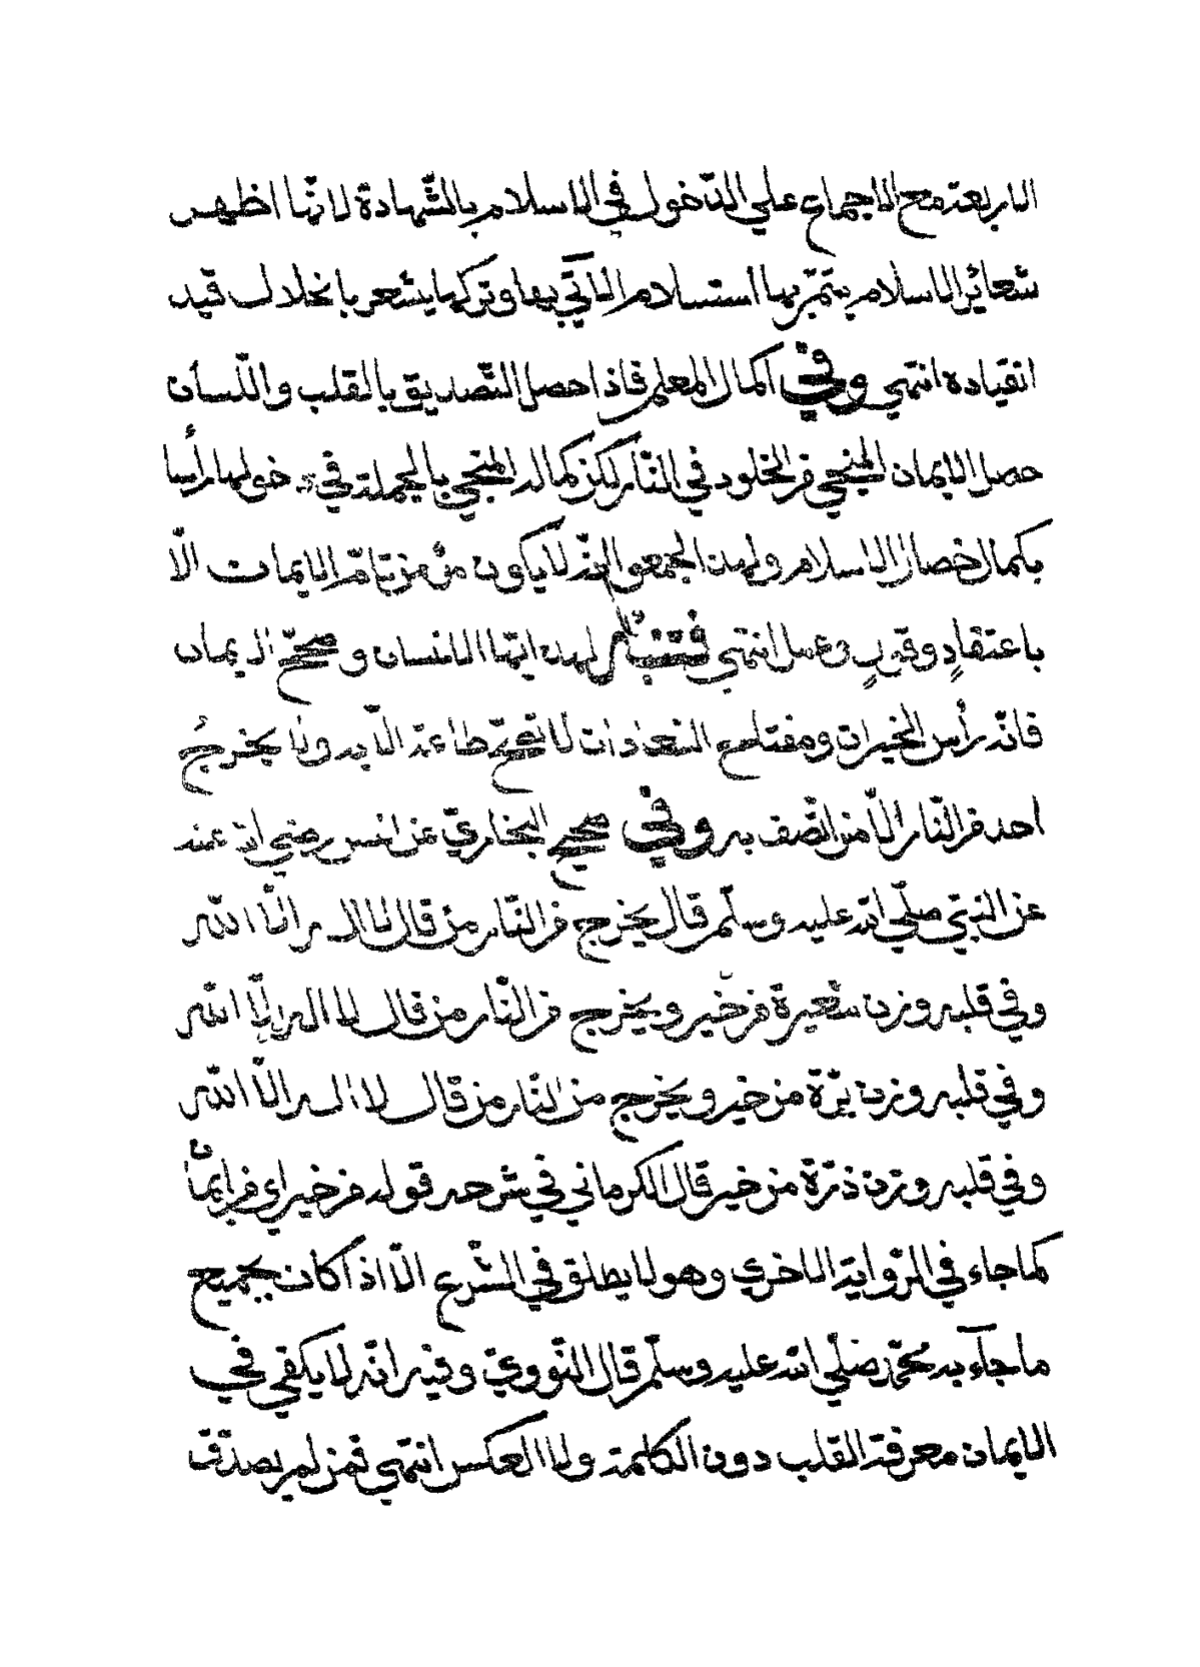 الاربعة مع الاجماع علي الدّخول في الاسلام بالشّهادة لانّها اظهر
شعائر الاسلام يتمّ بها استسلام الآتي بها وتركها يشعر بانخلال قيد
انقياده انتهي وفي اكمال المعلم فاذا حصل التّصديق بالقلب واللّسان
حصل الايمان المنجي من الخلود في النّار لكن كماله المنجي بالجملة من دخولها رأسا
بكمال خصال الاسلام ولهذا اجمعوا انّه لا يكون مؤمن تامّ الايمان الّا
باعتقادٍ وقولٍ وعمل انتهي فتنبّه لهذا ايّها الانسان وصحّح الايمان
فانّه رأس الخيرات ومفتاح السّعادات لا تصحّ طاعة الّا به ولا يخرجُ
احد من النّار الّا من اتّصف به وفي صحيح البخاريّ عن انس رضي الله عنه
عن النبيّ صلّي الله عليه وسلّم قال يخرج من النّار من قال لا اله الّا الله
وفي قلبه وزن شعيرة من خير ويخرج من النّار من قال لا اله الّا الله
وفي قلبه وزن برّة من خير ويخرج من النّار من قال لا اله الّا الله
وفي قلبه وزن ذرّة من خير قال الكرماني في شرحه قوله من خير اي من ايمان
كما جاء في الرّواية الاخري وهو لا يطلق في الشّرع الّا اذا كان بجميع
ما جآء به محمّد صلّي الله عليه وسلّم قال النّوويّ وفيه انّه لا يكفي في
الايمان معرفة القلب دون الكلمة ولا العكس انتهي فمن لم يصدّق